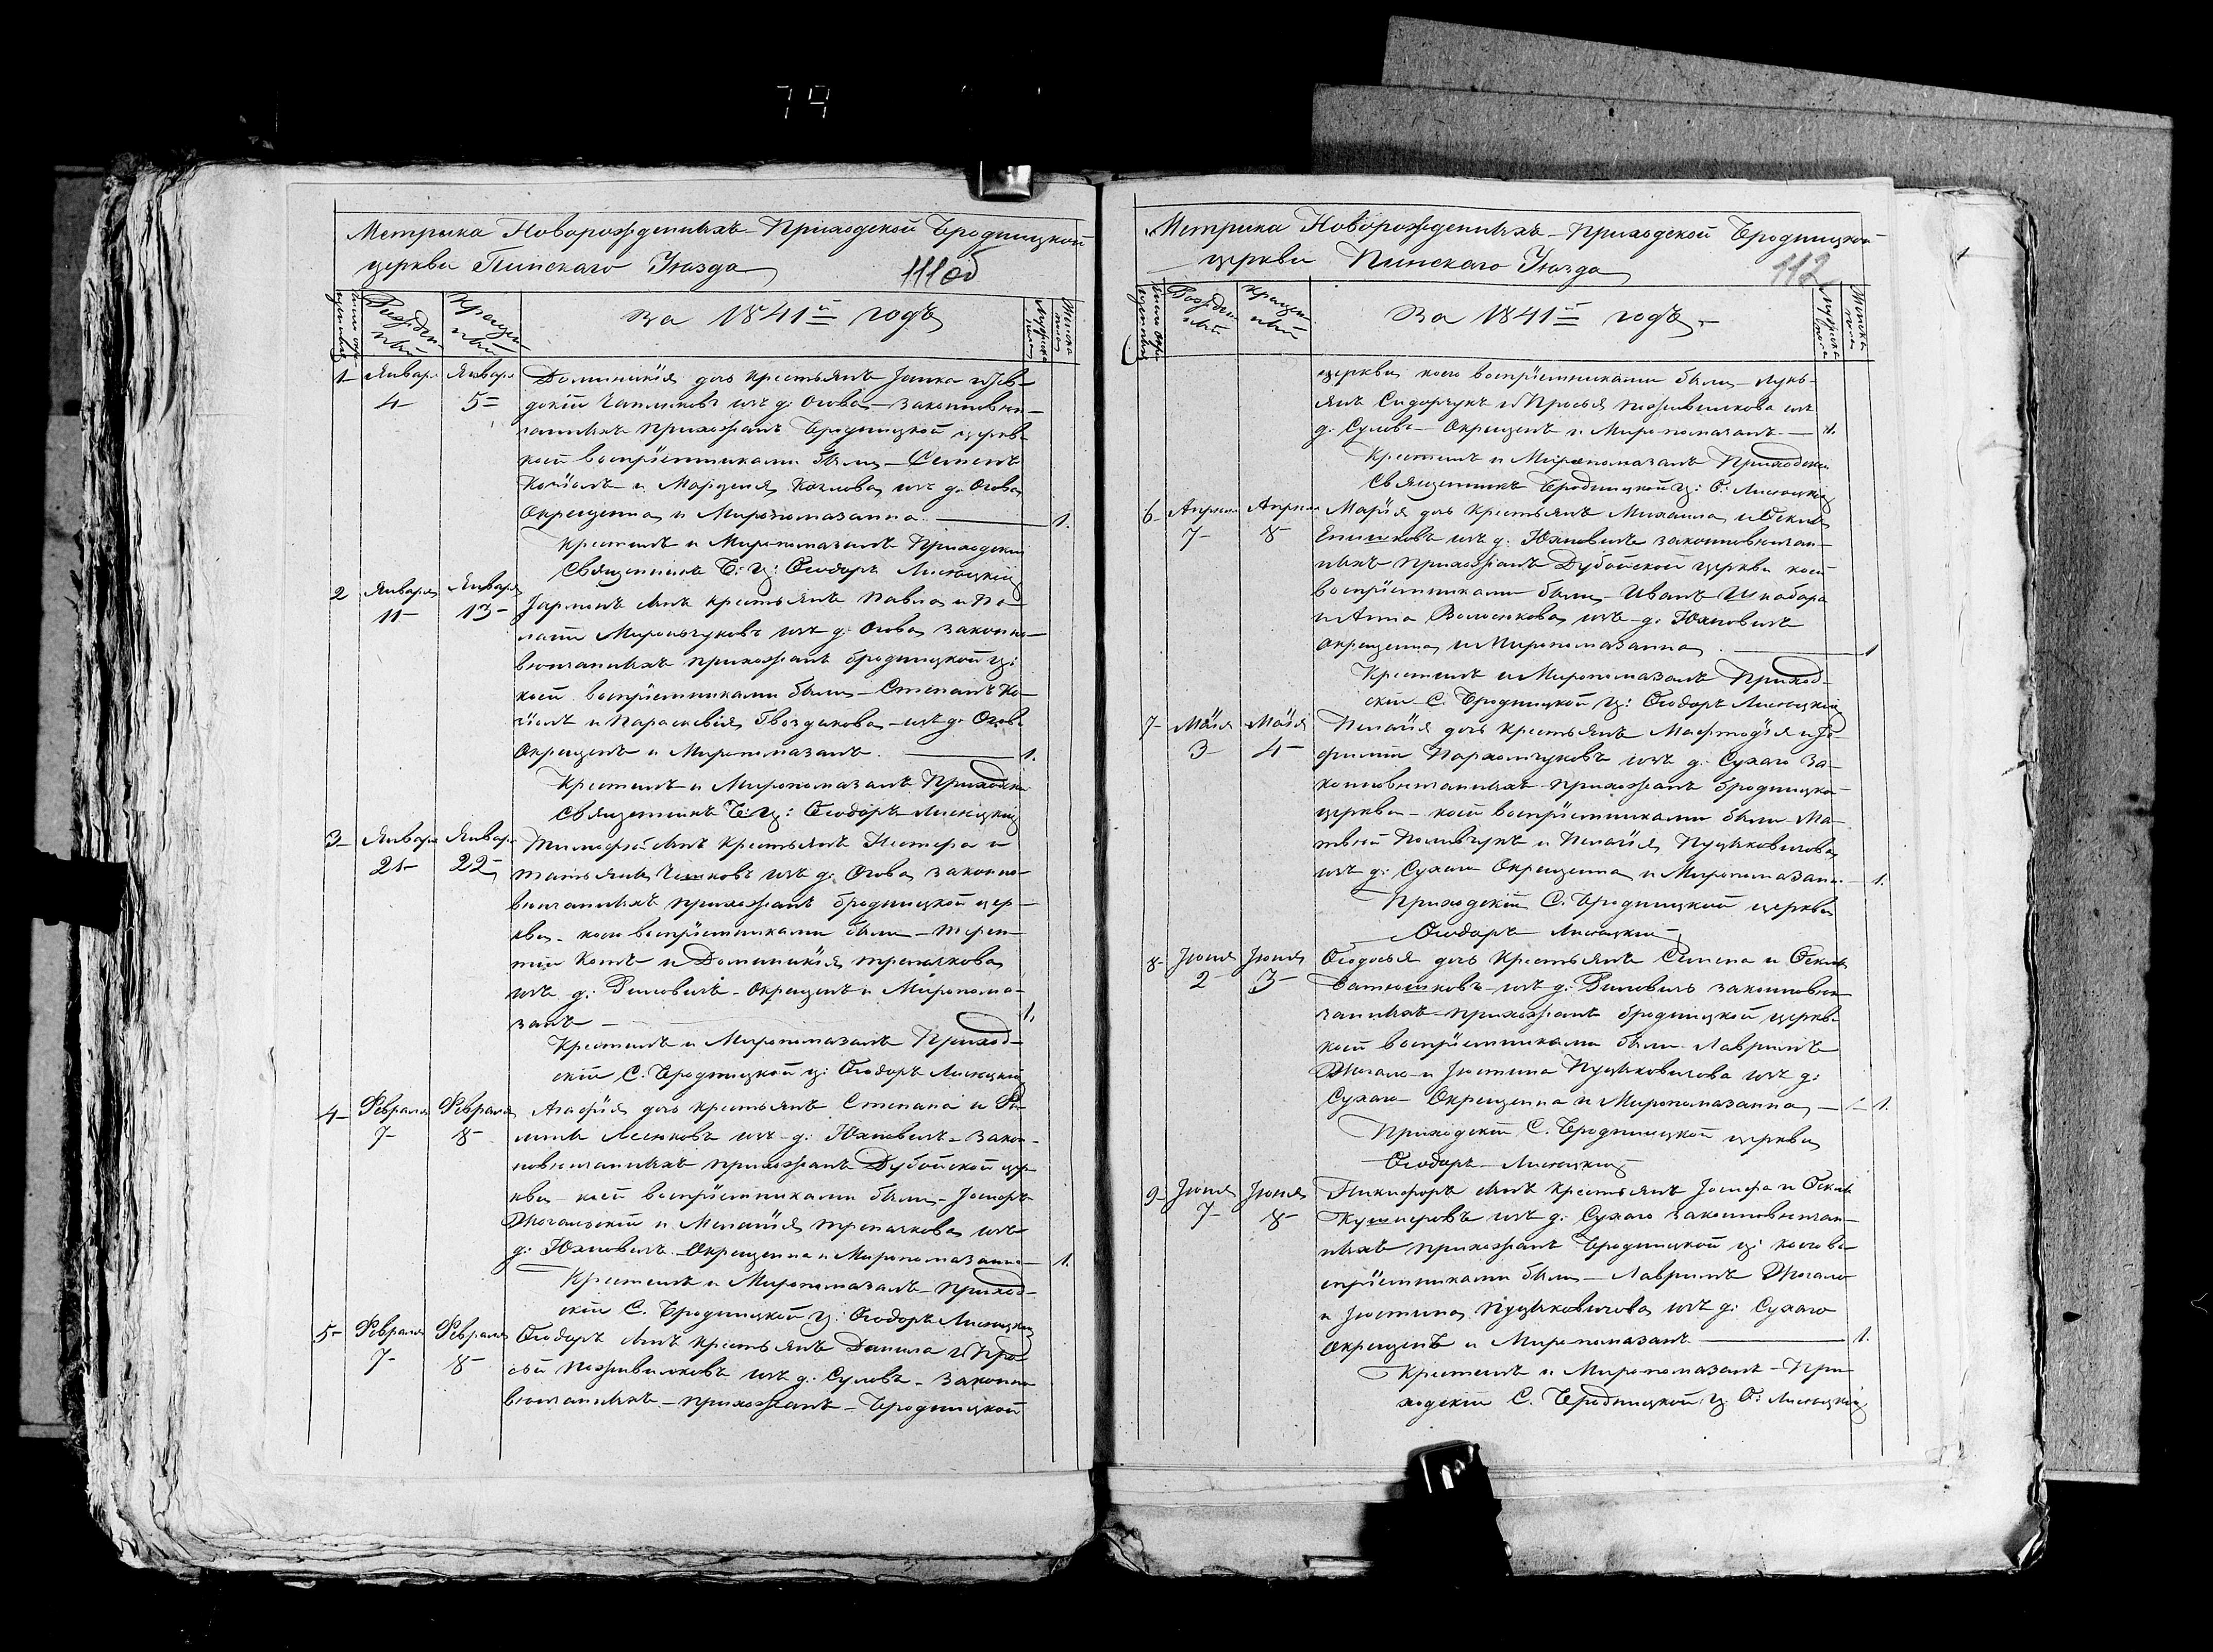 79
Метрика Новорожденныхъ Приходской Бродницкой
церкви Пинскаго Уѣзда
111 об
Рожденій
Крещеній
За 1841й годъ
Мужеска пола
Женска пола
1 Января 4 Января 5 Доминикія дочь крестьянъ Јанка и Јев-
докіи из д: Огова законновѣн-
чанныхъ прихожанъ Бродницкой церкв
коей воспріемниками были Семенъ
и Козлова изъ д: Огова
Окрещенна и Миропомазанна 1.
Крестилъ и Миропомазалъ Приходскій
Священникъ Б: Ц: Ѳеодоръ Лисецкій
2 Января 11 Января 13 сынъ крестьянъ Павла и Пе-
лагіи изъ д: Огова законно-
вѣнчанныхъ прихожанъ бродницкой ц:
коей воспріемниками были Степанъ
и Параскевія Гвоздикова изъ д: Огова
Окрещенъ и Миропомазанъ 1.
Крестилъ и Миропомазалъ Приходскій
Священникъ Б: Ц: Ѳеодоръ Лисецкій
3 Января 21 Января 22 Тимофей сынъ крестьянъ Нестера и
Татьяны изъ д: Огова законно-
вѣнчанныхъ прихожанъ бродницкой цер-
кви коего воспріемниками были Терен-
тій и Доминикія
изъ д: Окрещенъ и Миропома-
занъ 1.
Крестилъ и Миропомазалъ Приход-
скій С. Бродницкой ц: Ѳеодоръ Лисецкій
4 Февраля 7 Февраля 8 Агафія дочь крестьянъ Степана и
изъ д: Юхновичъ закон-
новѣнчанныхъ прихожанъ Дубойской цер-
кви коей воспріемниками были Јосифъ
и Меланія изъ
д: Юхновичъ Окрещенна и Миропомазанна 1.
Крестилъ и Миропомазалъ приход-
скій С. Бродницкой ц: Ѳеодоръ Лисецкій
5 Февраля 7 Февраля 8 Ѳеодоръ сынъ крестьянъ Данила и Про-
сьи Поживилковъ изъ д: законно
вѣнчанныхъ прихожанъ Бродницкой
Метрика Новорожденныхъ Приходской Бродницкой
церкви Пинскаго Уѣзда
112
Рожденій
Крещеній
За 1841й годъ
Мужеска пола
Женска пола
церкви коего воспріемниками были Лукь-
янъ Сидорчукъ и Просья изъ
д: Окрещенъ и Миропомазанъ 1.
Крестилъ и Миропомазалъ Приходскій
Священникъ Бродницкой ц: Ѳ: Лисецкій
6 Апрѣля 7 Апрѣля 8 Марія дочь крестьянъ Михаила и Ѳеклы
изъ д: Юхновичъ законновѣнчан-
ныхъ прихожанъ Дубойской церкви коей
воспріемниками были Иванъ Шкабара
и Анна изъ д: Юхновичъ
окрещенна и Миропомазанна 1
Крестилъ и Миропомазалъ Приход-
скій С. Бродницкой ц: Ѳеодоръ Лисецкій
7 Маія 3 Маія 4 Пелагія дочь крестьянъ
Пархомчуковъ изъ д: Сухаго за-
конновѣнчанныхъ прихожанъ бродницкой
церкви коей воспріемниками были Ма-
твей и Пелагія Пуцыковичова
изъ д: Сухаго Окрещенна и Миропомазанна 1.
Приходскій С. Бродницкой церкви
Ѳеодоръ Лисецкій
8 Јюня 2 Јюня 3 Ѳеодосья дочь крестьянъ Семена и Ѳеклы
изъ д: законновѣн
чанныхъ прихожанъ бродницкой церкв
коей воспріемниками были Лавринъ
и Јюстина Пуцыковичова изъ д:
Сухаго Окрещенна и Миропомазанна 1.
Приходскій С. Бродницкой церкви
Ѳеодоръ Лисецкій
9 Јюня 7 Јюня 8 Никифоръ сынъ крестьянъ Јосифа и Ѳеклы
Кушнеровъ изъ д: Сухаго законновѣнчан-
ныхъ прихожанъ Бродницкой ц: коего во-
спріемниками были Лавринъ
и Јюстина Пуцыковичова изъ д: Сухаго
окрещенъ и Миропомазанъ 1.
Крестилъ и Миропомазалъ При
ходскій С. Бродницкой ц: Ѳ: Лисецкій